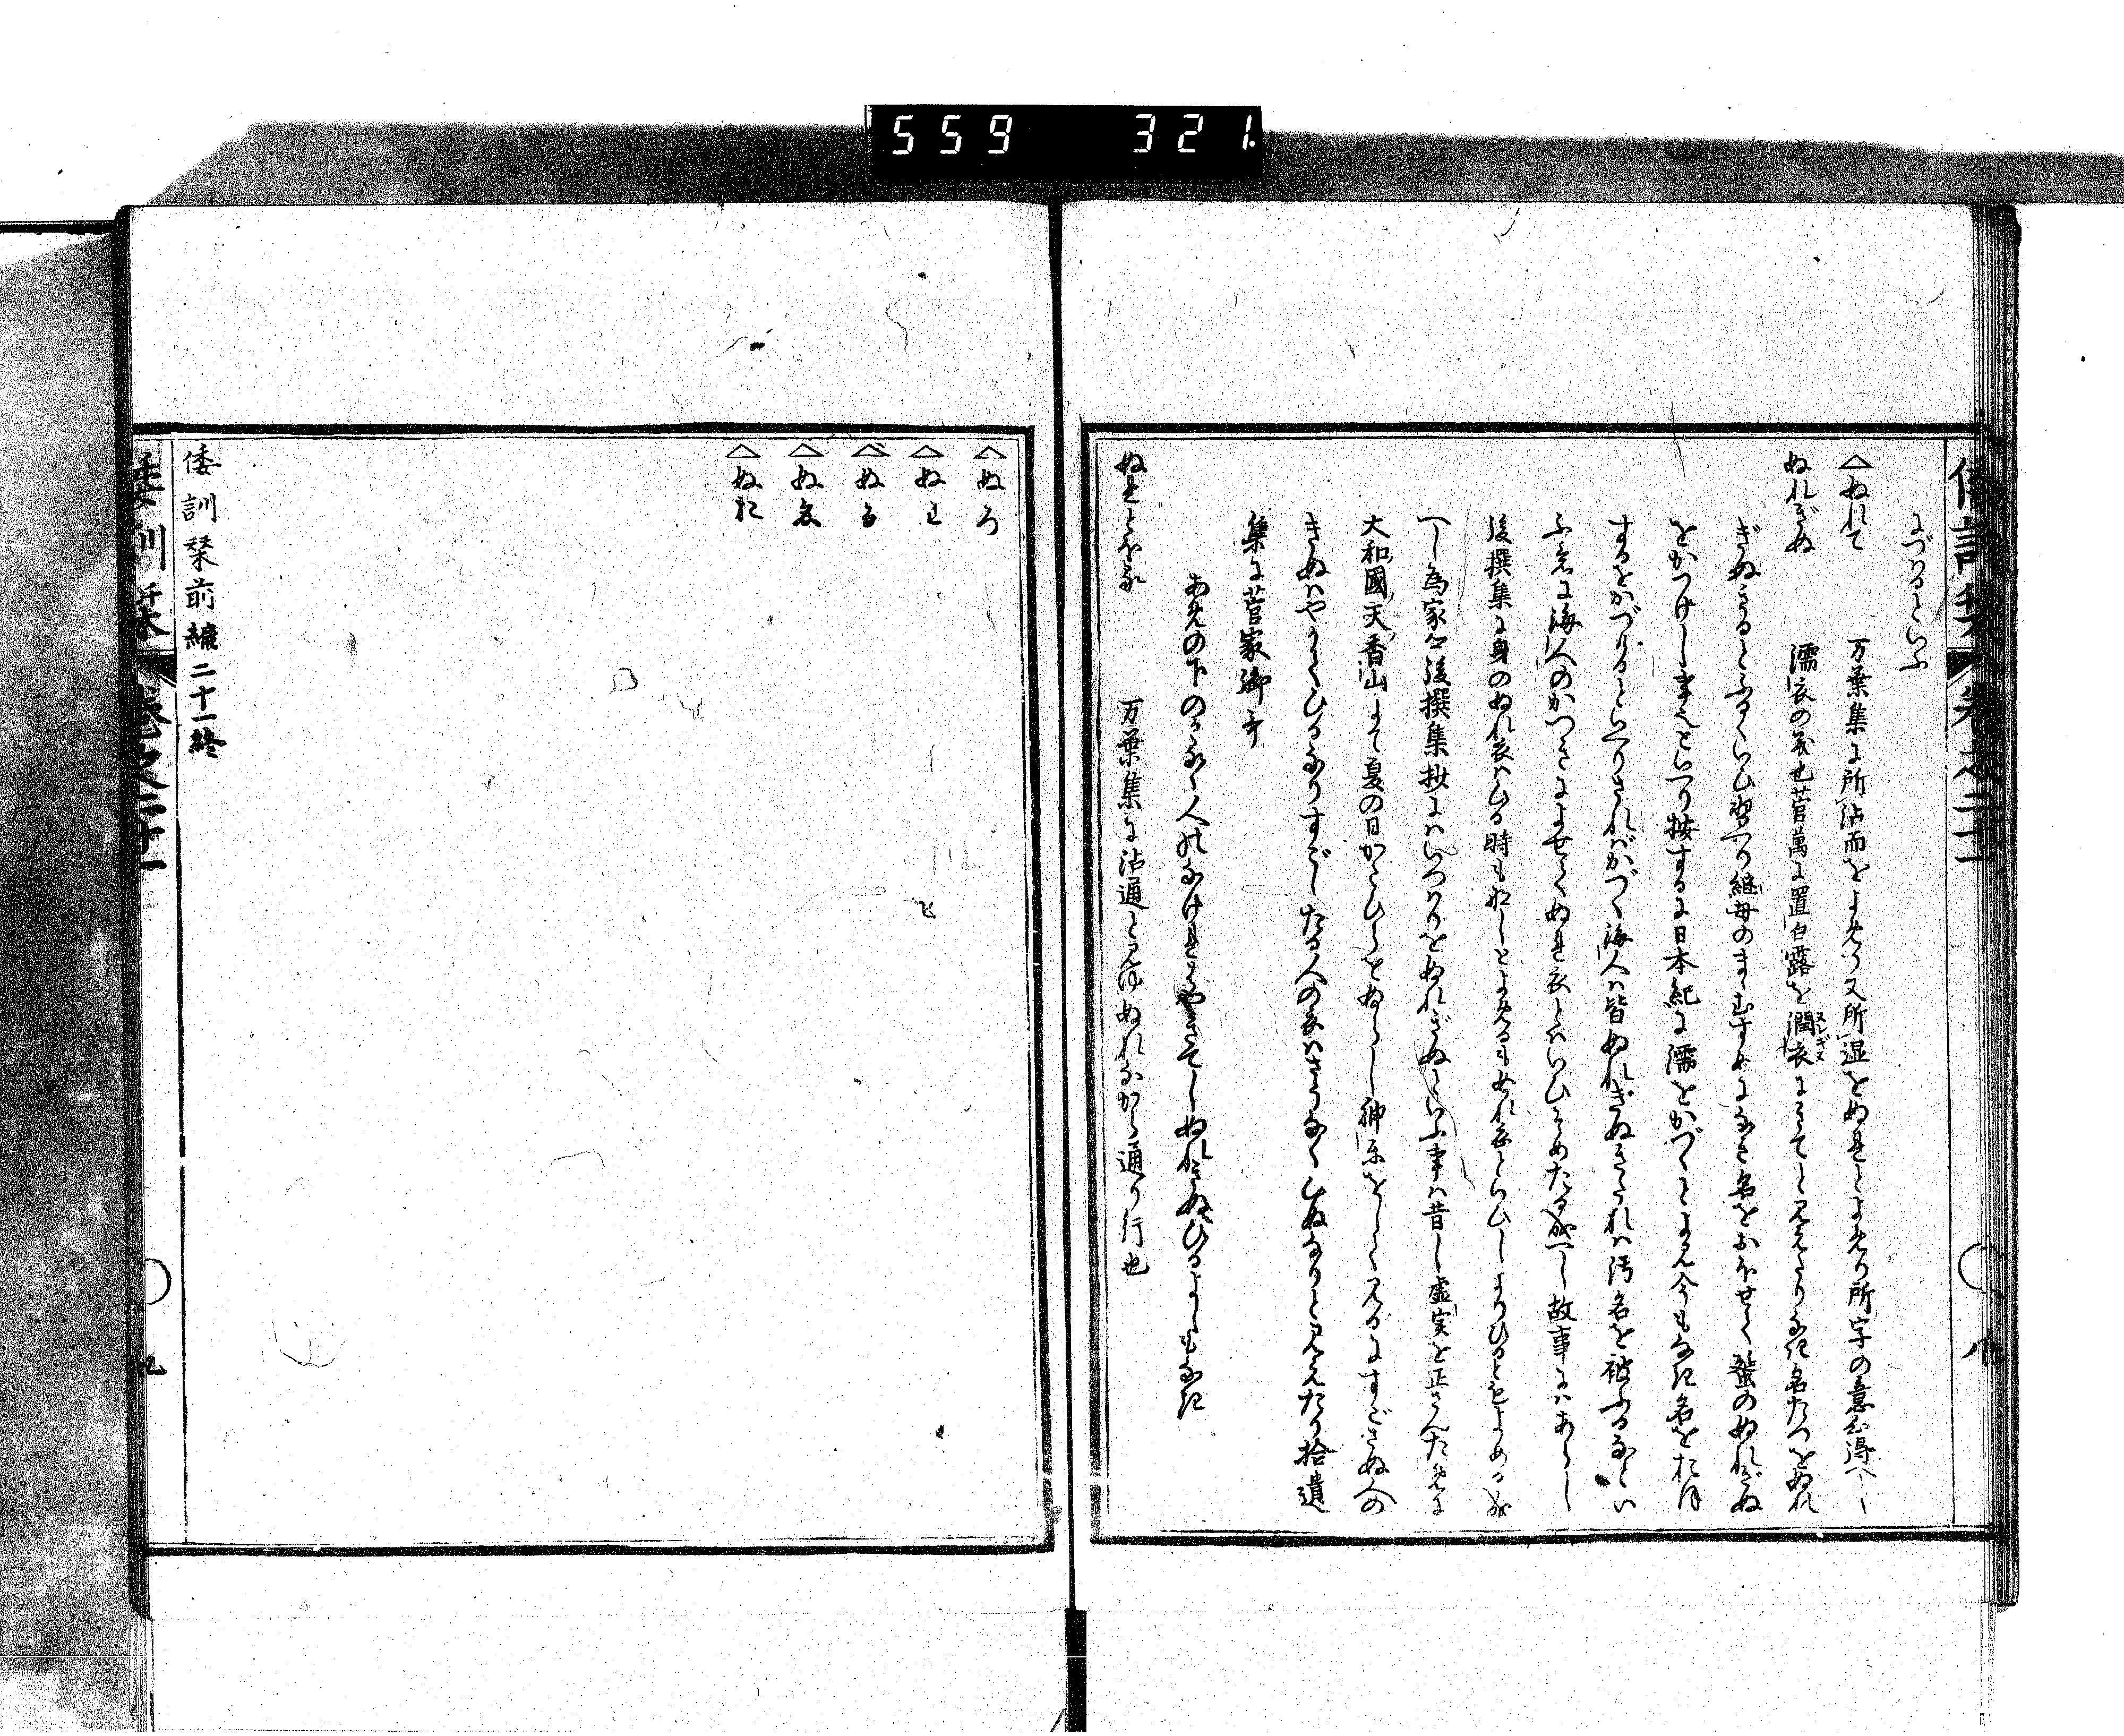 559 321
倭訓栞 巻之二十一 八
にづけるといふ
△ぬれて 万葉集に所沾而をよめり又所湿をぬれとよめり所字の意心得へし
ぬれぎぬ 濡衣の義也菅萬に置白露を潤衣にきてと見えたりなき名たつをぬれ
ヌレギヌ
ぎぬきるとふるくいひ習へり継母のまゝむすめになき名をおほせて蜑のぬれぎぬ
をかつけし事也といへり按するに日本紀に濡をかづくとよみ今もなき名をおほ
するをかづけるといへりされバかづく海人ハ皆ぬれぎぬきたれハ汚名を被ふるなとい
ふ意に海人のかつきによせてぬれ衣とハいひそめたる成へし故事にハあらし
後撰集に身のぬれ衣ハひる時もなしとよめるもぬれ衣といひしよりひるともよめる成
へし為家公後撰集抄にハいつハりをぬれぎぬといふ事ハ昔し虚実を正さんために
大和國天香山にて夏の日かたひらをぬらし神木をして見るにすごさぬ人の
きぬハやうやくひるなりすごしたる人の衣ハさうなくひぬなりと見えたり拾遺
集に菅家御歌
あめの下のかるゝ人のなけれはやきてしぬれきぬひるよしもなき
ぬれとほる 万葉集に沾通と見ゆぬれなから通り行也
△ぬろ
△ぬわ
△ぬゐ
△ぬゑ
△ぬお
倭訓栞前編二十一終
倭訓栞 巻之二十一 九